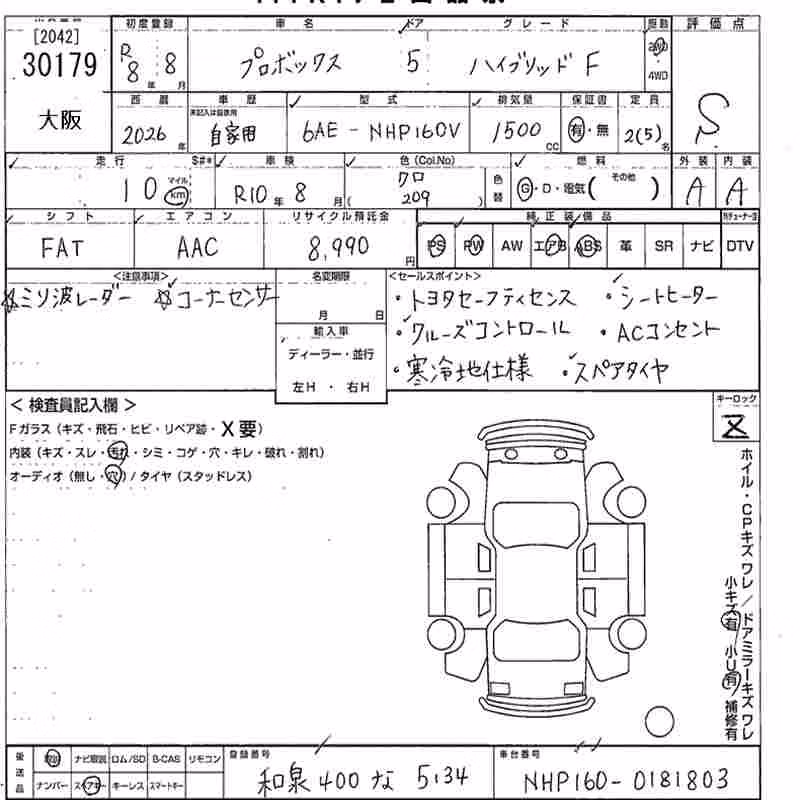 [2042]
30179
大阪
初度登録
R8年 8月
車名
プロボックス
ドア
5
グレード
ハイブリッド F
駆動
2WD
4WD
評価点
S
西暦
2026年
車歴
未記入は自家用
自家用
型式
6AE-NHP160V
排気量
1500cc
保証書
有・無
定員
2(5)名
走行
S#*
10
マイル
km
車検
R10年 8月
色(Col.No)
クロ
( 209 )
色替
燃料
G・D・電気( その他 )
外装
A
内装
A
シフト
FAT
エアコン
AAC
リサイクル預託金
8,990円
純正装備品
PS PW AW エアB ABS 革 SR ナビ DTV
<注意事項>
☆ミリ波レーダー ☆コーナーセンサー
名変期限
月 日
輸入車
ディーラー・並行
左H・右H
<セールスポイント>
・トヨタセーフティセンス ・シートヒーター
・クルーズコントロール ・ACコンセント
・寒冷地仕様 ・スペアタイヤ
<検査員記入欄>
Fガラス(キズ・飛石・ヒビ・リペア跡・X要)
内装(キズ・スレ・汚れ・シミ・コゲ・穴・キレ・破れ・割れ)
オーディオ(無し・穴)/タイヤ(スタッドレス)
キーロック
ホイル・CPキズワレ/ドアミラーキズワレ
小キズ有 小U有 補修有
後送品
取説 ナビ取説 ロム/SD B-CAS リモコン
ナンバー スペアキー キーレス スマートキー
登録番号
和泉 400 な 5134
車台番号
NHP160-0181803